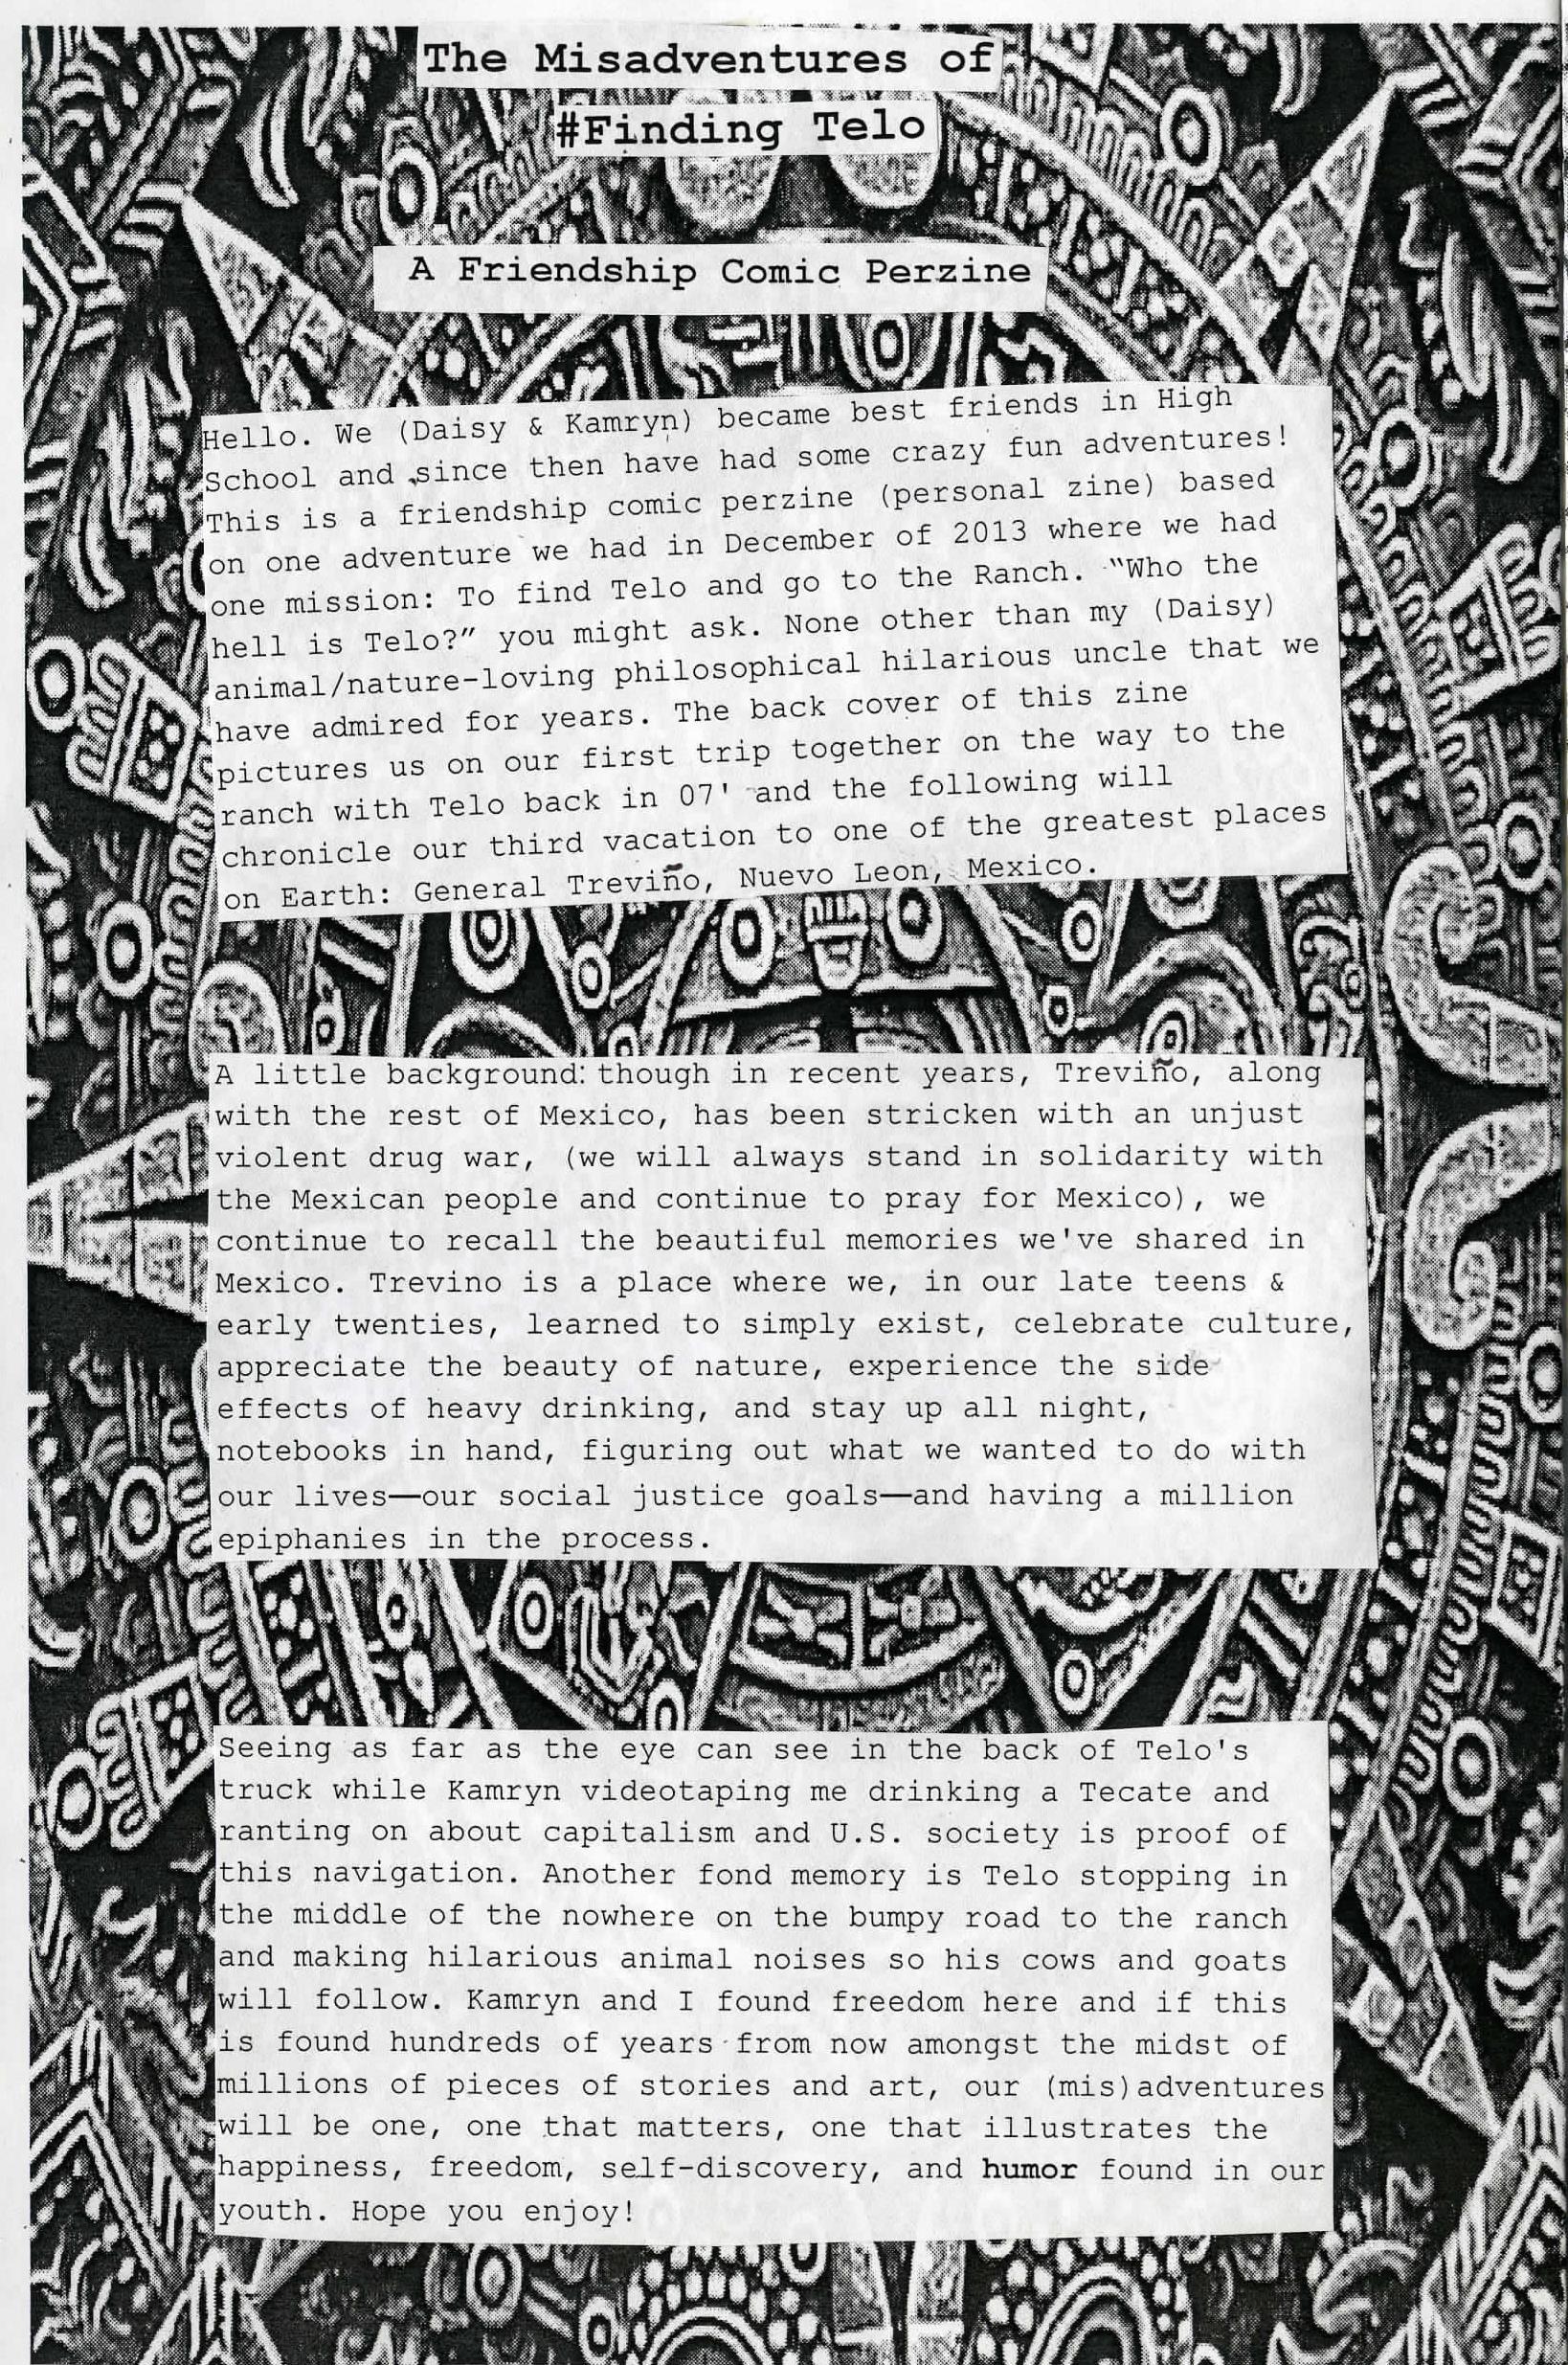 The Misadventures of
#Finding Telo
A Friendship Comic Perzine
Hello. We (Daisy & Kamryn) became best friends in High
School and since then have had some crazy fun adventures!
This is a friendship comic perzine (personal zine) based
on one adventure we had in December of 2013 where we had
one mission: To find Telo and go to the Ranch. "Who the
hell is Telo?" you might ask. None other than my (Daisy)
animal/nature-loving philosophical hilarious uncle that we
have admired for years. The back cover of this zine
pictures us on our first trip together on the way to the
ranch with Telo back in 07' and the following will
chronicle our third vacation to one of the greatest places
on Earth: General Treviño, Nuevo Leon, Mexico.
A little background: though in recent years, Treviño, along
with the rest of Mexico, has been stricken with an unjust
violent drug war, (we will always stand in solidarity with
the Mexican people and continue to pray for Mexico), we
continue to recall the beautiful memories we've shared in
Mexico. Trevino is a place where we, in our late teens &
early twenties, learned to simply exist, celebrate culture,
appreciate the beauty of nature, experience the side
effects of heavy drinking, and stay up all night,
notebooks in hand, figuring out what we wanted to do with
our lives—our social justice goals—and having a million
epiphanies in the process.
Seeing as far as the eye can see in the back of Telo's
truck while Kamryn videotaping me drinking a Tecate and
ranting on about capitalism and U.S. society is proof of
this navigation. Another fond memory is Telo stopping in
the middle of the nowhere on the bumpy road to the ranch
and making hilarious animal noises so his cows and goats
will follow. Kamryn and I found freedom here and if this
is found hundreds of years from now amongst the midst of
millions of pieces of stories and art, our (mis)adventures
will be one, one that matters, one that illustrates the
happiness, freedom, self-discovery, and humor found in our
youth. Hope you enjoy!